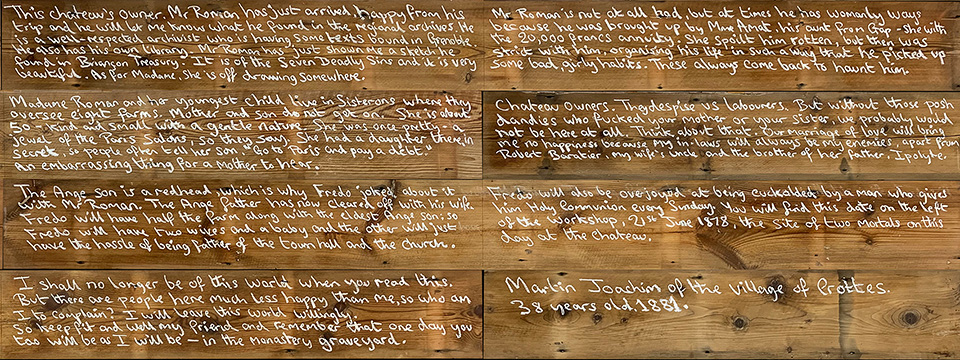 This chateau's owner. Mr Roman has just arrived happy from his
trip and he will let me know what he found in the national archives. He
is a well-respected archivist who is having some texts bound in Grenoble.
He also has his own library. Mr Roman has just shown me a sketch he
found in Briançon Treasury? It is of the Seven Deadly Sins and it is very
beautiful. As for Madame. She is off drawing somewhere.
Mr Roman is not at all bad, but at times he has womanly ways
because he was brought up by Mme Amat, his aunt from Gap - she with
the 20,000 francs annuity. She spoiled him rotten, but then was
strict with him, organising his life in such a way that he picked up
some bad, girly habits. These always come back to haunt him.
Madame Roman and her youngest child live in Sisterons where they
oversee eight farms. Mother and son do not get on. She is about
50 - kind and small with a gentle nature. She was once pretty - a
jewel of the Paris Salons, so they say. She had a daughter there, in
secret, so people often tell her son to "Go to Paris and pay a debt."
An embarrassing thing for a mother to hear.
Chateau owners. They despise us labourers. But without those posh
dandies who fucked your mother or your sister, we probably would
not be here at all. Think about that. Our marriage of love will bring
me no happiness because my in-laws will always be my enemies, apart from
Robert Baratier my wife's uncle and the brother of her father. Ipolyte.
The Ange son is a redhead which is why Fredo joked about it
with Mr Roman. The Ange father has now cleared off with his wife.
Fredo will have half the farm along with the eldest Ange son; so
Fredo will have two wives and a baby and the other will just
have the hassle of being father of the town hall and the church.
Fredo will also be overjoyed at being cuckolded by a man who gives
him Holy Communion every Sunday. You will find this date on the left
of the workshop, 21st June 1878, the site of two mortals on this
day at the chateau.
I shall no longer be of this world when you read this.
But there are people here much less happy than me, so who am
I to complain? I will leave this world willingly.
So keep fit and well my friend and remember that one day you
too will be as I will be – in the monastery graveyard.
Martin Joachim of the village of Crottes.
38 years old. 1881.